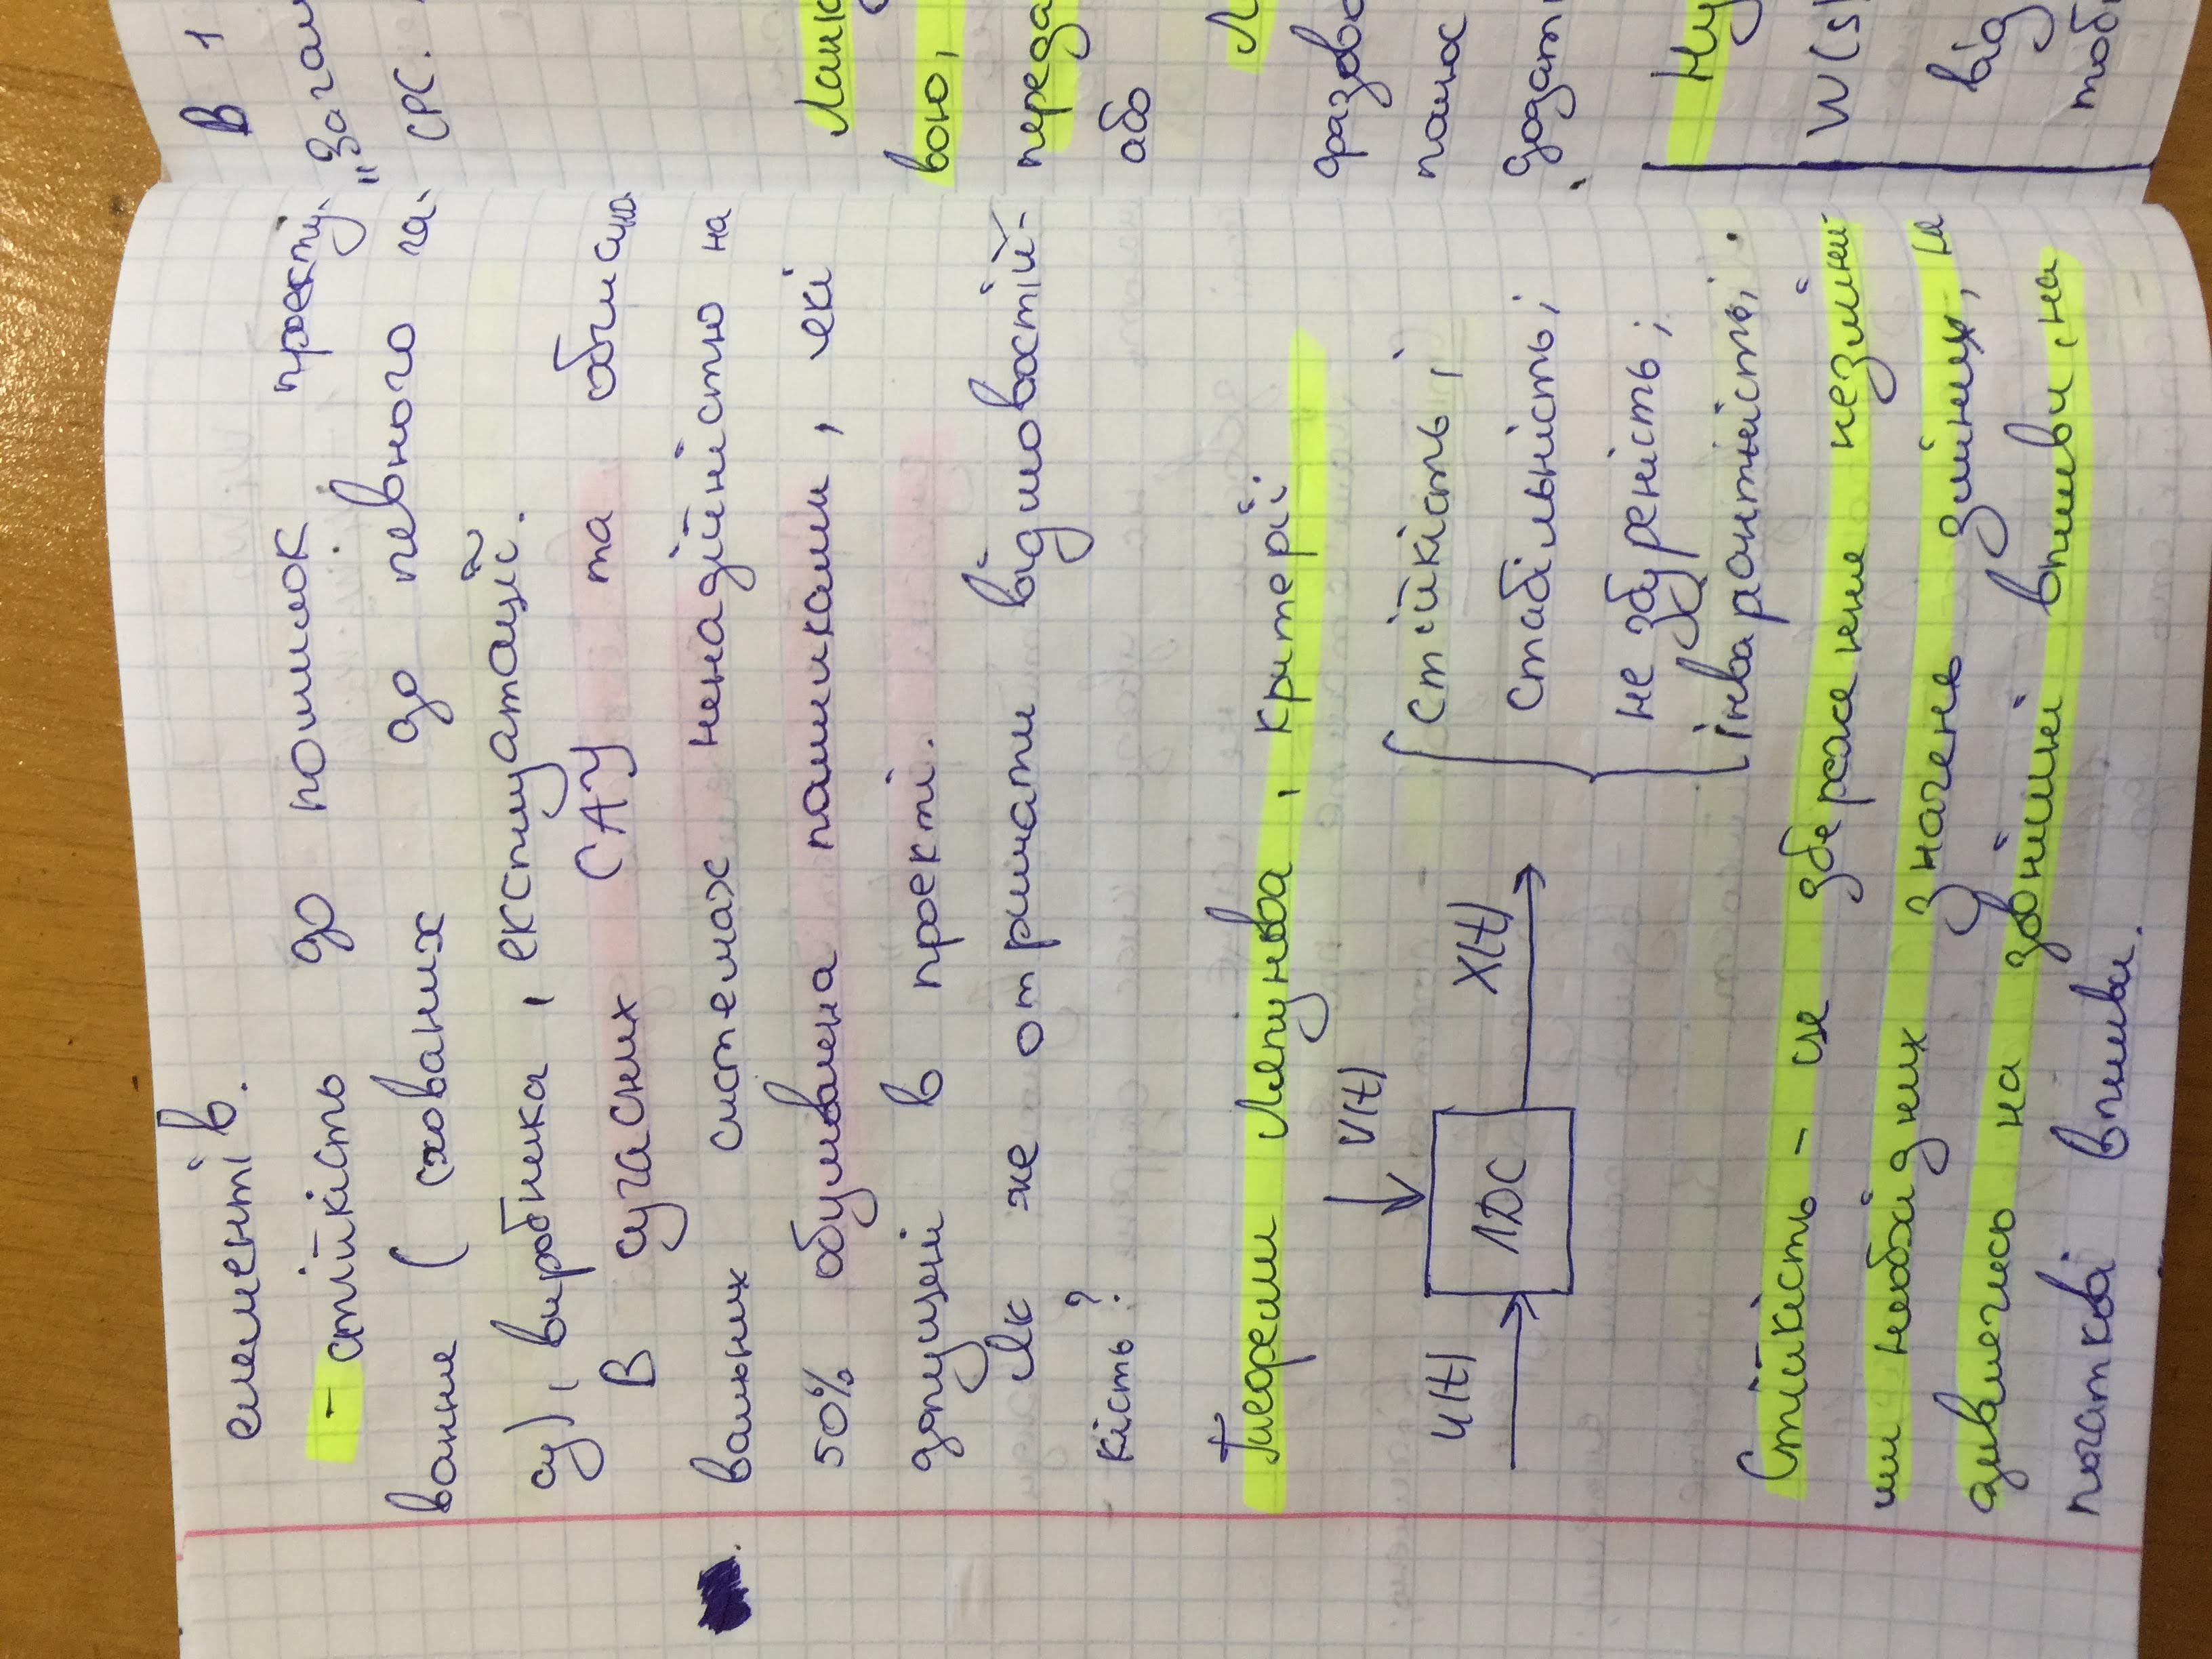 елементів.
- стійкість до помилок проекту-
вання ( схованих до певного ча-
су), виробника, експлуатації.
В сучасних САУ та обчислю-
вальних системах ненадійністю на
50% обумовлена помилками, які
допущені в проекті.
Як же отримати відмовостій-
кість?
Теореми Ляпунова, критерії
V(t)
U(t)
ЛДС
X(t)
стійкість;
стабільність;
не збуреність;
інваріантність;
Стійкість - це збереження незмінни-
ми необхідних значень змінних, не
дивлячись на зовнішні впливи, на
початкові впливи.
В 1
„Загал
СРС.
Ланк
вою,
переда
або
Л
фазово
полюс
додатн
Ну
W(s)
від
тоб